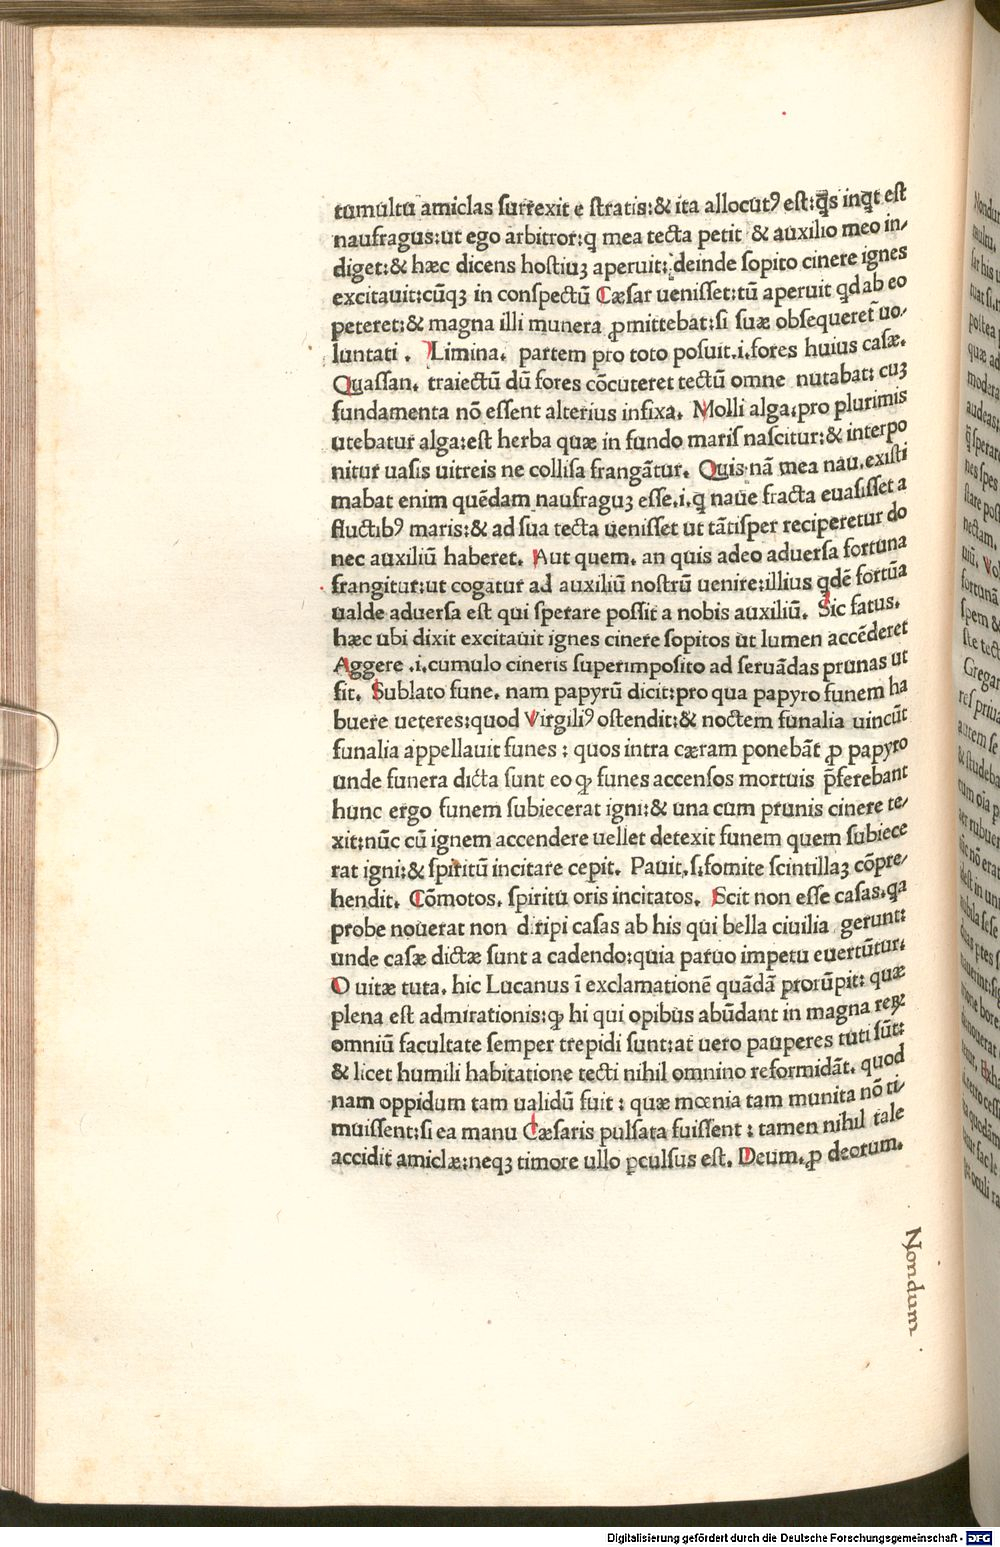 tumultu amiclas surrexit e stratis:& ita allocutꝰ est:q̄s inq̄t est
naufragus:ut ego arbitror:q̨ mea tecta petit & auxilio meo in⸗
diget:& hæc dicens hostiuꝫ aperuit: deinde sopito cinere ignes
excitauit:cūqꝫ in conspectū Cæsar uenisset:tū aperuit qd ab eo
peteret:& magna illi munera ꝓmittebat:si suæ obsequeret̄ uo⸗
luntati . Limina. partem pro toto posuit.i.fores huius casæ.
Quassan. traiectū dū fores cōcuteret tectū omne nutabat: cuꝫ
fundamenta nō essent alterius infixa. Molli alga.pro plurimis
utebatur alga:est herba quæ in fundo maris nascitur:& interpo
nitur uasis uitreis ne collisa frangātur. Quis nā mea nau.existi
mabat enim quēdam naufraguꝫ esse.i.q̨ naue fracta euasisset a
fluctibꝰ maris:& ad sua tecta uenisset ut tātisper reciperetur do
nec auxiliū haberet. Aut quem. an quis adeo aduersa fortuna
frangitur:ut cogatur ad auxiliū nostrū uenire:illius qdē fortūa
ualde aduersa est qui sperare possit a nobis auxiliū. Sic fatus.
hæc ubi dixit excitauit ignes cinere sopitos ut lumen accēderet
Aggere .i.cumulo cineris superimposito ad seruādas prunas ut
fit. Sublato fune. nam papyrū dicit:pro qua papyro funem ha
buere ueteres:quod Virgiliꝰ ostendit:& noctem funalia uincūt
funalia appellauit funes : quos intra cæram ponebāt ꝓ papyro
unde funera dicta sunt eo ꝙ funes accensos mortuis p̄ferebant
hunc ergo funem subiecerat igni:& una cum prunis cinere te⸗
xit:nūc cū ignem accendere uellet detexit funem quem subiece
rat igni:& spiritū incitare cepit. Pauit.s.fomite scintillaꝫ cōpre⸗
hendit. Cōmotos. spiritu oris incitatos. Scit non esse casas.qa
probe nouerat non diripi casas ab his qui bella ciuilia gerunt:
unde casæ dictæ sunt a cadendo:quia paruo impetu euertūtur.
O uitæ tuta. hic Lucanus ī exclamationē quādā prorūpit: quæ
plena est admirationis:ꝙ hi qui opibus abūdant in magna reꝝ
omniū facultate semper trepidi sunt:at uero pauperes tuti sūt:
& licet humili habitatione tecti nihil omnino reformidāt. quod
nam oppidum tam ualidū fuit : quæ mœnia tam munita nō ti⸗
muissent:si ea manu Cæsaris pulsata fuissent : tamen nihil tale
accidit amiclæ:neqꝫ timore ullo ꝑculsus est. Deum.ꝓ deorum.
Nondum
Digitalisierung gefördert durch die Deutsche Forschungsgemeinschaft - DFG